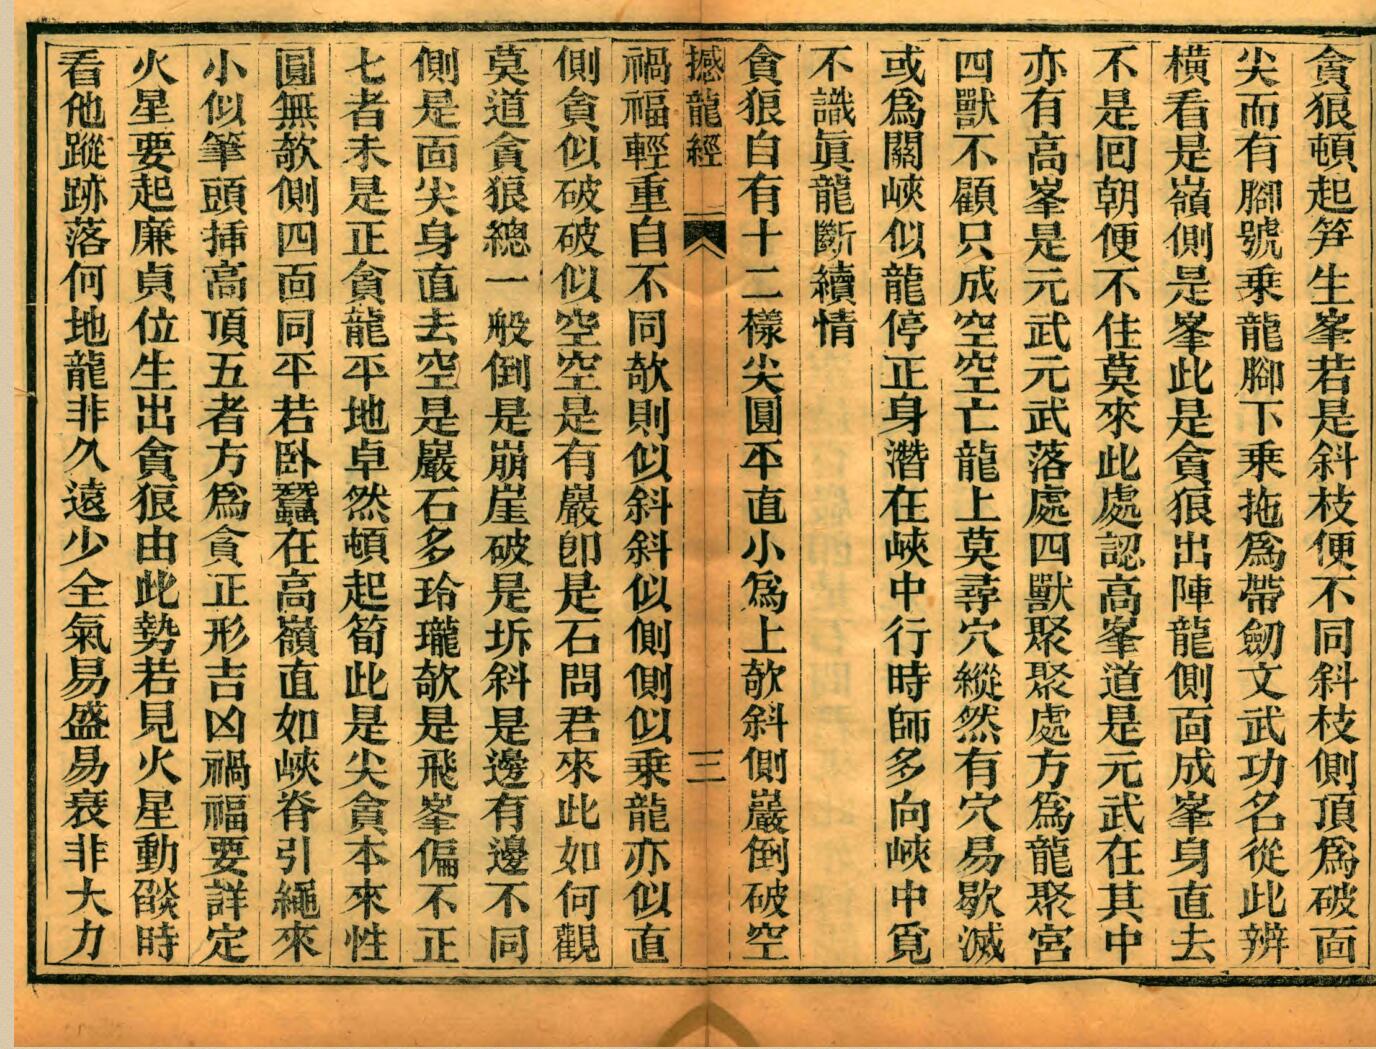 貪狼頓起笋生峯若是斜枝便不同斜枝側頂爲破面
尖而有腳號乗龍腳下乗拖爲帶劒文武功名從此辨
横看是嶺側是峯此是貪狼出陣龍側面成峯身直去
不是囘朝便不住莫來此處認高峯道是元武在其中
亦有高峯是元武元武落處四獸聚聚處方爲龍聚宮
四獸不顧只成空空亡龍上莫尋穴縱然有穴易歇滅
或爲關峽似龍停正身潛在峽中行時師多向峽中覓
不識眞龍斷續情
貪狼自有十二樣尖圓平直小爲上欹斜側巖倒破空
撼龍經 三
禍福輕重自不同欹則似斜斜似側側似乗龍亦似直
側貪似破破似空空是有巖卽是石問君來此如何觀
莫道貪狼總一般倒是崩崖破是坼斜是邊有邊不同
側是面尖身直去空是巖石多玲瓏欹是飛峯偏不正
七者未是正貪龍平地卓然頓起筍此是尖貪本來性
圓無欹側四面同平若卧蠶在高嶺直如峽脊引繩來
小似筆頭挿高頂五者方爲貪正形吉凶禍福要詳定
火星要起廉貞位生出貪狼由此勢若見火星動燄時
看他蹤跡落何地龍非久遠少全氣易盛易衰非大力